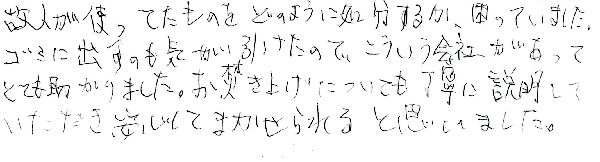 故人が使ってたものをどのように処分するか、困っていました。
ゴミに出すのも気が引けたので、こういう会社があって
とても助かりました。お焚き上げについても丁寧に説明して
いただき安心してまかせられると思いました。